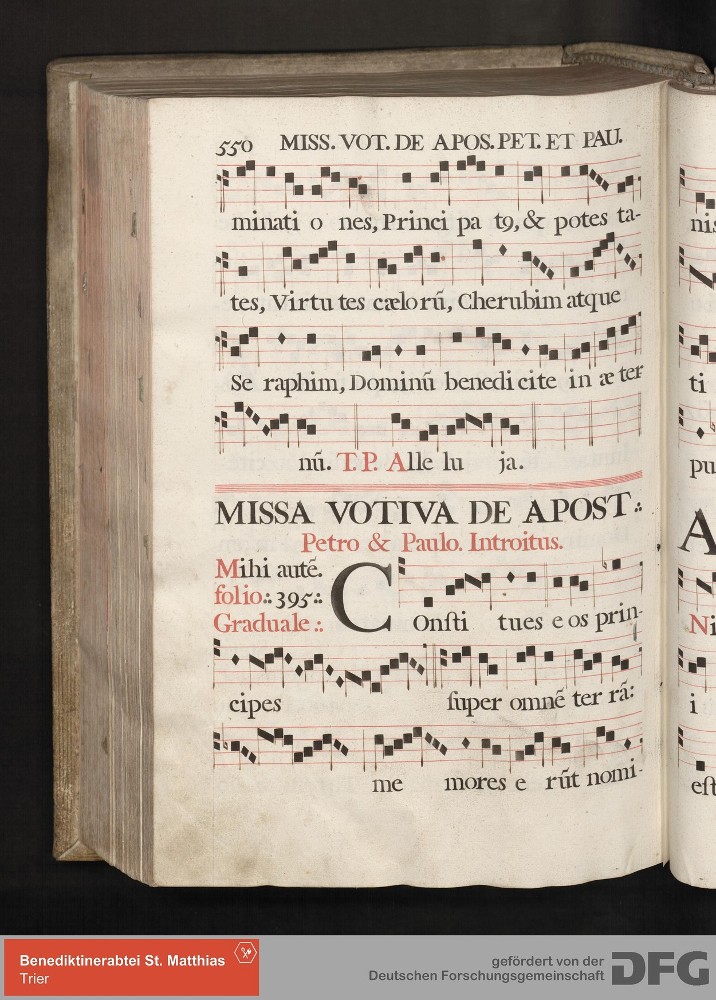 550 MISS. VOT. DE APOS. PET. ET PAU.
minati o nes, Princi pa t9, & potes ta-
tes, Virtu tes cælo rũ, Cherubim atque
Se raphim, Dominũ benedi cite in æ ter
nũ. T. P. Alle lu ja.
MISSA VOTIVA DE APOST.:
Petro & Paulo. Introitus.
Mihi autẽ.
folio.: 395.:
Graduale.:
COnſti tues e os prin-
cipes ſuper omnẽ ter rã:
me mores e rũt nomi-
nis
ti
pu
A
Ni
i
eſt
Benediktinerabtei St. Matthias
Trier
gefördert von der
Deutschen Forschungsgemeinschaft
DFG